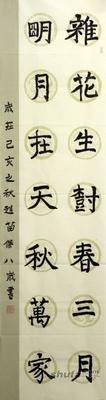 雜花生對春三月
眀月在天秋萬家
歲在己亥之秋趙苗傑八歲書